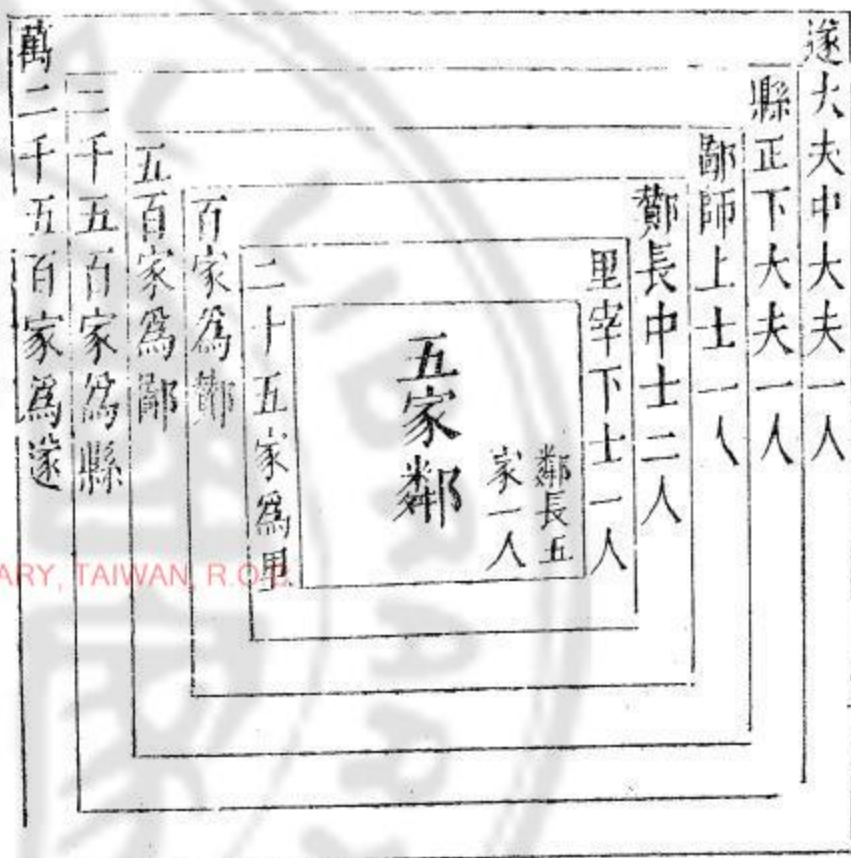 遂大夫中大夫一人
縣正下大夫一人
鄙師上士一人
酇長中士二人
里宰下士一人
鄰長五
家一人
五家鄰
二十五家爲里
百家爲酇
五百家爲鄙
二千五百家爲縣
萬二千五百家爲遂
ARY, TAIWAN, R.O.C.